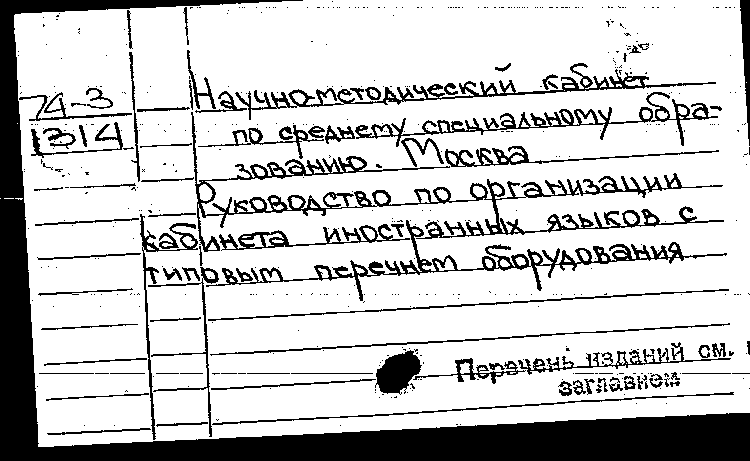 74-3
1314
Научно-методический кабинет
по среднему специальному обра-
зованию. Москва
Руководство по организации
кабинета иностранных языков с
типовым перечнем оборудования
Перечень изданий см.
заглавном